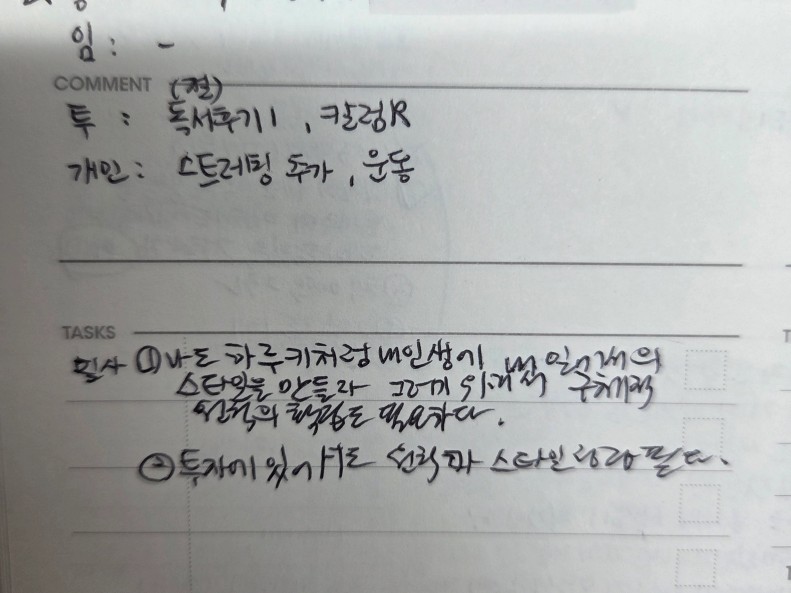 임 : -
COMMENT (절)
투 : 독서후기1, 칼럼R
개인 : 스트레칭 추가, 운동
TASKS
필사 ① 나도 하루키처럼 내인생에
스타일을 만들자 그러기 위해서 구체적
원칙의 확립도 필요하다.
② 투자에 있어서도 원칙과 스타일 확립 필요.